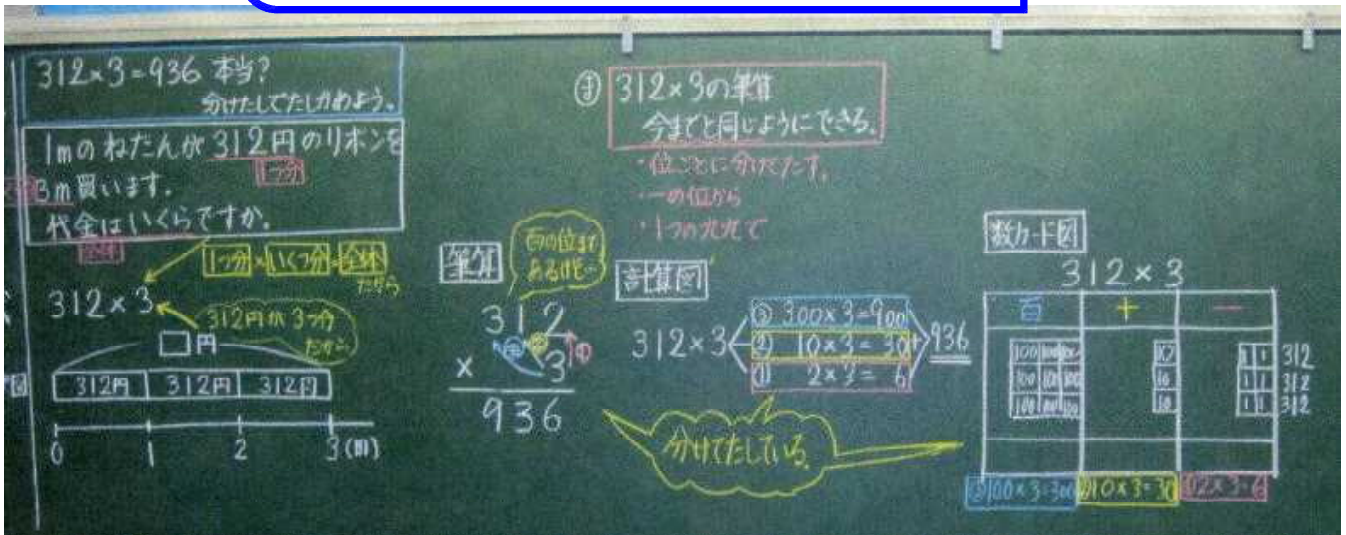 312×3=936 本当?
分けたしてたしかめよう。
1mのねだんが312円のリボンを
1つ分
3m買います。
代金はいくらですか。
1つ分×いくつ分=全体
だから
312×3
312円が3つ分
だから
□円
312円 312円 312円
0 1 2 3(m)
筆算
百の位まで
あるけど…
312
× 3
936
ま 312×3の筆算
今までと同じようにできる。
・位ごとに分けてたす。
・一の位から
・1つの九九で
計算図
312×3
③ 300×3=900
② 10×3=30
① 2×3=6
936
分けてたしている。
数カード図
312×3
百 十 一
100 100 100 10 1 1 312
100 100 100 10 1 1 312
100 100 100 10 1 1 312
③100×3=300 ②10×3=30 ①2×3=6